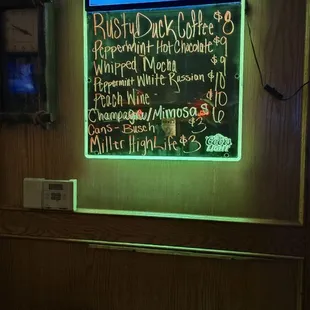 Rusty Duck Coffee $8
Peppermint Hot Chocolate $9
Whipped Mocha $9
Peppermint White Russion $10
Peach Wine - $10
Champagne/Mimosa $6
Cans - Busch $3
Miller High Life $3
Coors
LIGHT